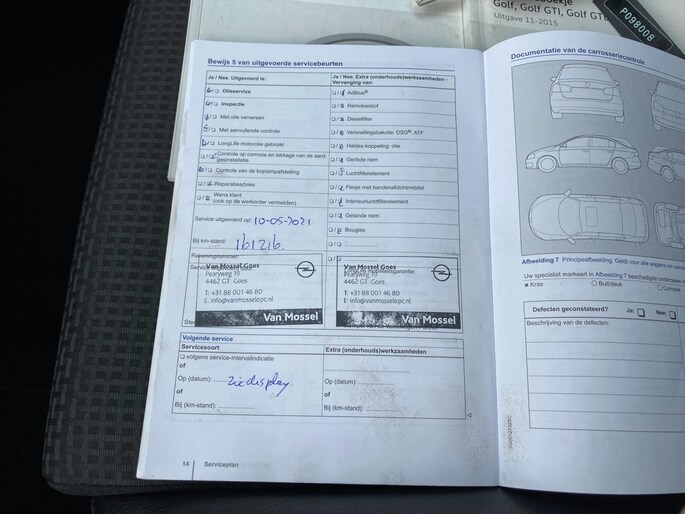 oekje
Golf, Golf GTI, Golf GTE
Uitgave 11-2015
P098008
Bewijs 5 van uitgevoerde servicebeurten
Ja / Nee. Uitgevoerd is:
Olieservice
Inspectie
Met olie verversen
Met aanvullende controle
LongLife motorolie gebruikt
Controle op corrosie en lekkage van de aard-
gasinstallatie
Controle van de koplampafstelling
Reparatieadvies
Wens klant
(ook op de werkorder vermelden)
Service uitgevoerd op: 10-05-2021
Bij km-stand: 161216
Rekeningnummer:
Van Mossel Goes
Pearyweg 19
4462 GT Goes
T: +31 88 001 46 80
E: info@vanmosselopc.nl
Van Mossel
Ja / Nee. Extra (onderhouds)werkzaamheden -
Vervanging van:
AdBlue®
Remvloeistof
Dieselfilter
Versnellingsbakolie: DSG®, ATF
Haldex-koppeling: olie
Geribde riem
Luchtfilterelement
Flesje met bandenafdichtmiddel
Interieurluchtfilterelement
Getande riem
Bougies
mobiliteitsgarantie:
Van Mossel Goes
Pearyweg 19
4462 GT Goes
T: +31 88 001 46 80
E: info@vanmosselopc.nl
Van Mossel
Volgende service
Servicesoort
volgens service-intervalindicatie
of
Op (datum): zie display
of
Bij (km-stand):
Extra (onderhouds)werkzaamheden
Op (datum):
of
Bij (km-stand):
14 Serviceplan
Documentatie van de carrosseriecontrole
Afbeelding 7 Principeafbeelding. Geldt voor alle wagens en carross
Uw specialist markeert in Afbeelding 7 beschadigde onderdelen m
× Kras
Buil/deuk
Corrosie
Defecten geconstateerd? Ja: Nee:
Beschrijving van de defecten: